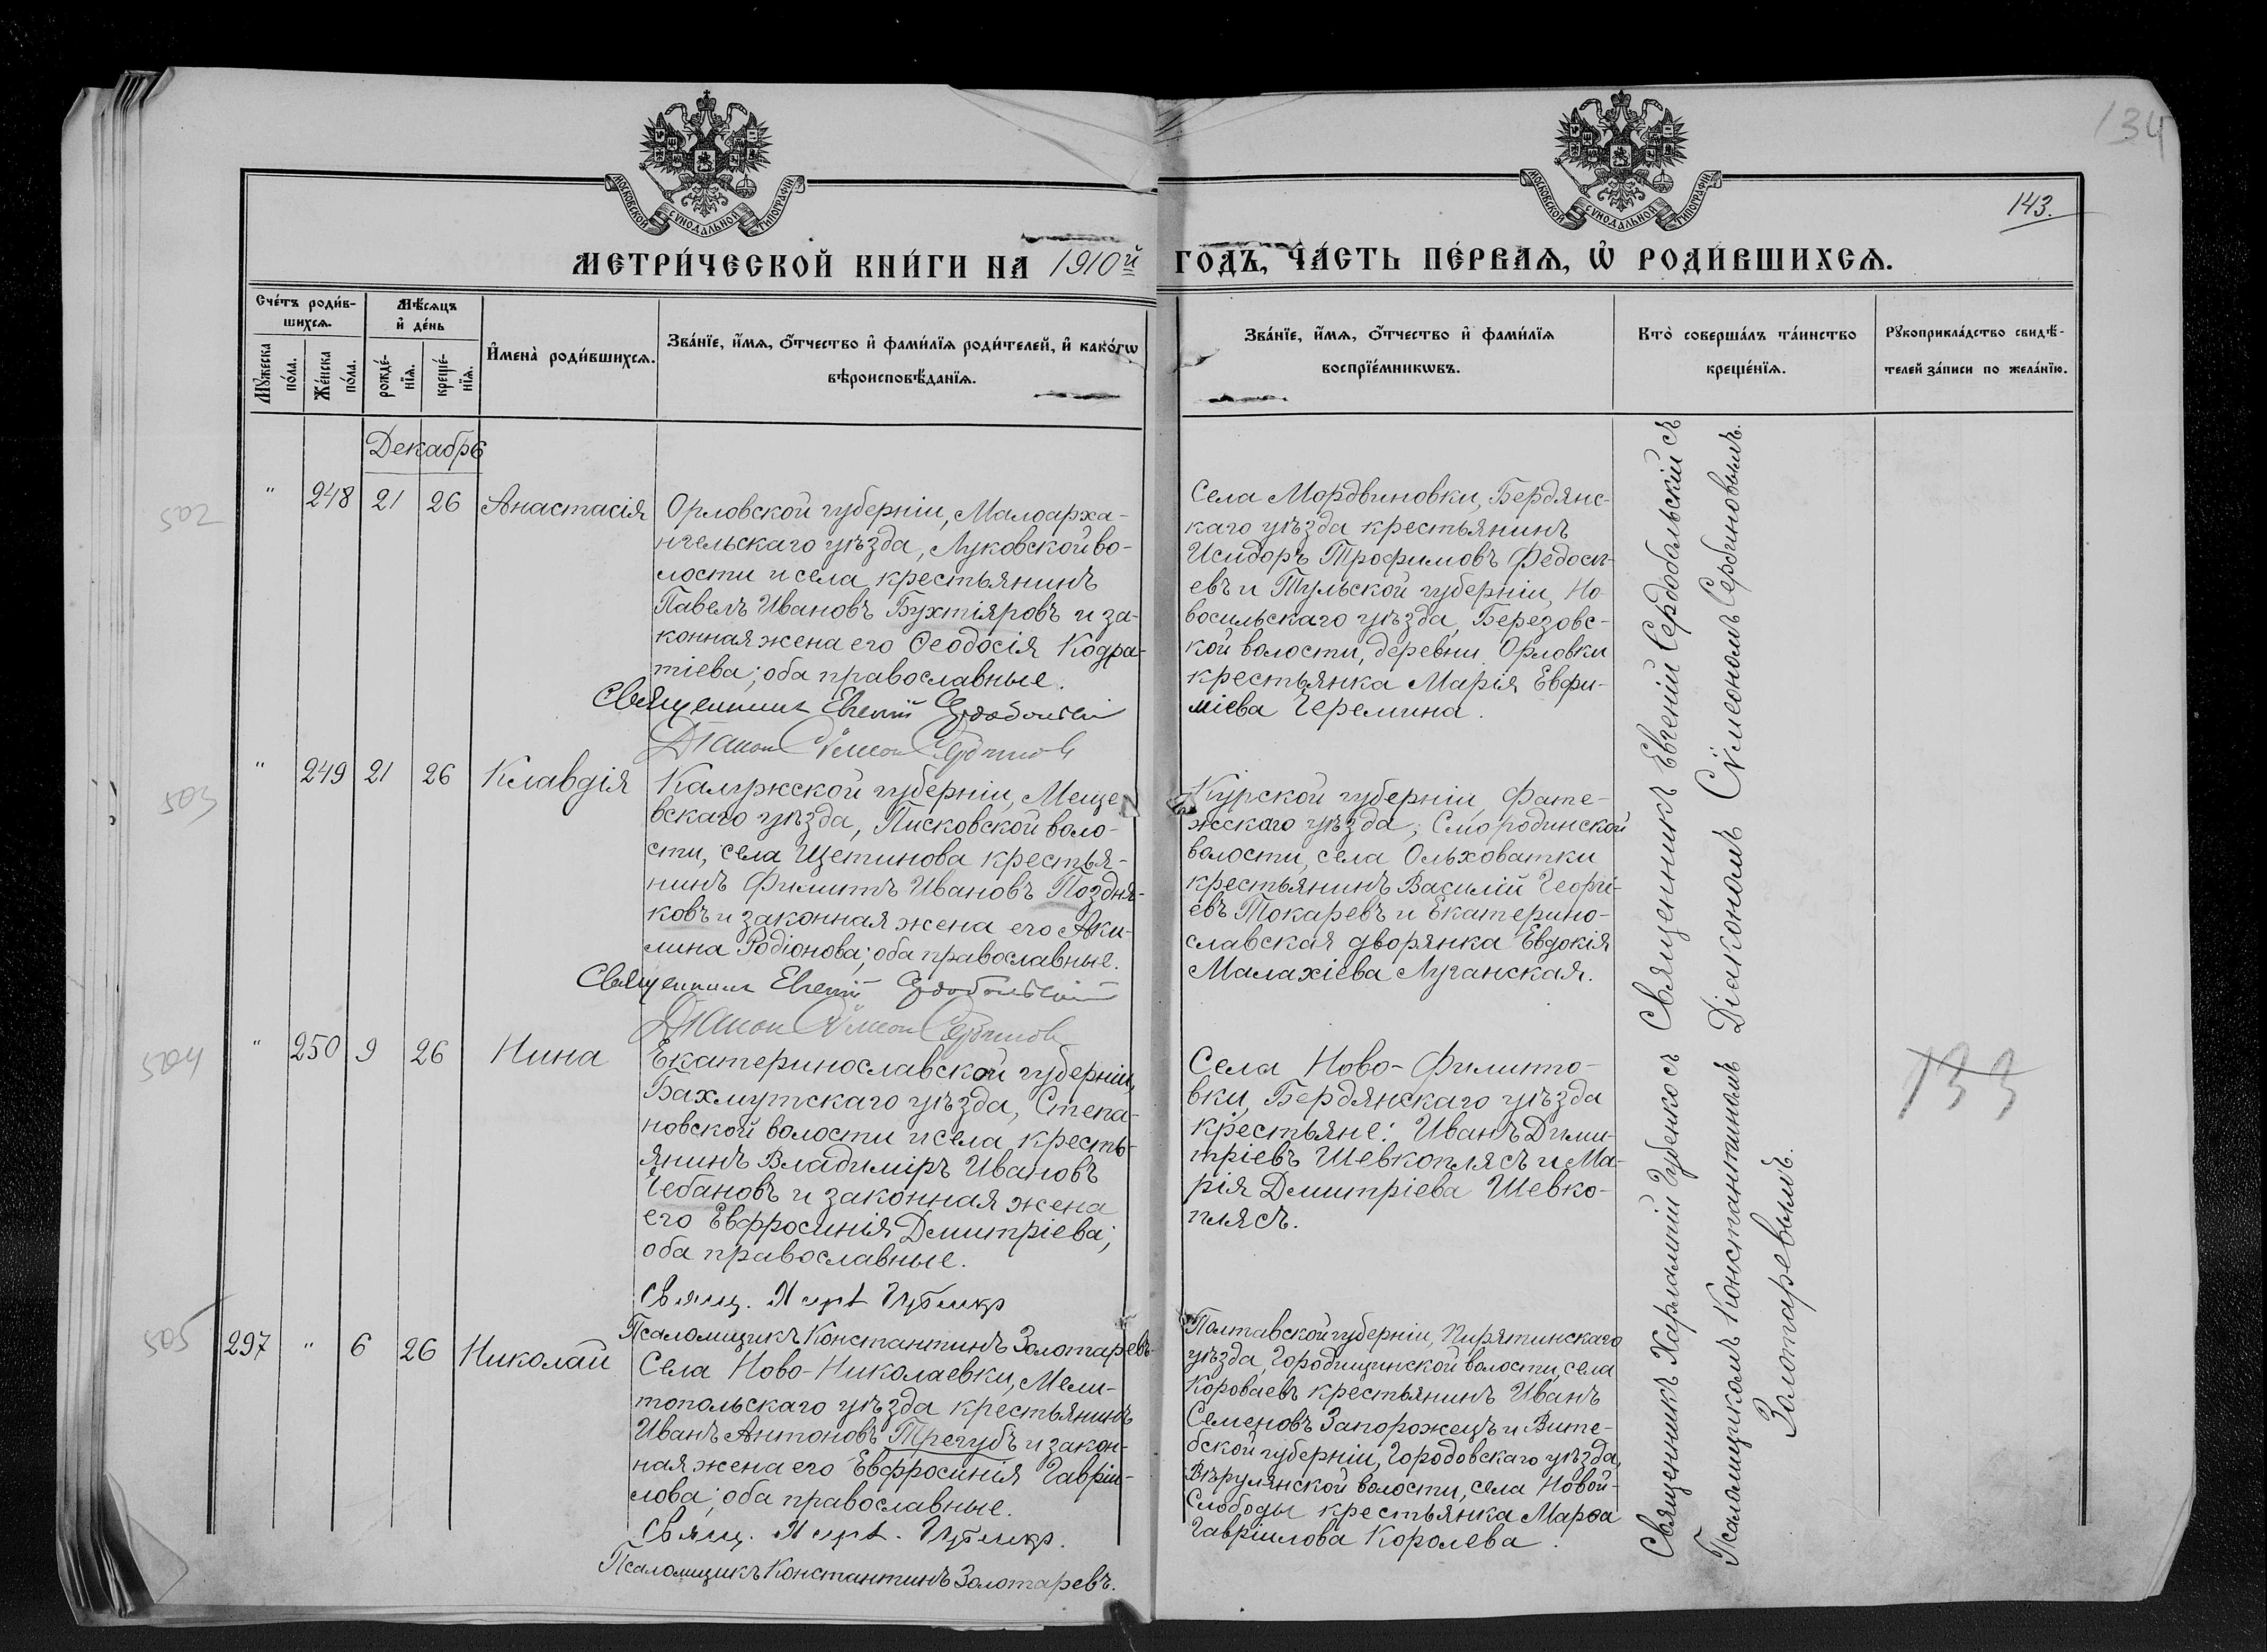 134
143.
МОСКОВСКОЙ СѴНОДАЛЬНОЙ ТИПОГРАФІИ
МОСКОВСКОЙ СѴНОДАЛЬНОЙ ТИПОГРАФІИ
МЕТРИ́ЧЕСКОЙ КНИ́ГИ НА 1910й ГОДЪ, ЧА́СТЬ ПЕ́РВАѦ, Ѡ҆ РОДИ́ВШИХСѦ.
Сче́тъ роди́в-
шихсѧ.
Мꙋ́жеска по́ла.
Же́нска по́ла.
Мѣ́сѧцъ
и҆ де́нь
рожде́-
нїѧ.
креще́-
нїѧ.
И҆мена̀ роди́вшихсѧ.
Зва́нїе, и҆́мѧ, ѻ҆́тчество и҆ фами́лїѧ роди́телей, и҆ како́гѡ
вѣроисповѣ́данїѧ.
Зва́нїе, и҆́мѧ, ѻ҆́тчество и҆ фами́лїѧ
воспрїе́мникѡвъ.
Кто̀ соверша́лъ та́инство
креще́нїѧ.
Рꙋкоприкла́дство свидѣ́-
телей за́писи по жела́нїю.
Декабрь
502
" 248 21 26 Анастасія
Орловской губерніи, Малоарха-
нгельскаго уѣзда, Луковской во-
лости и села, крестьянинъ
Павелъ Ивановъ Бухтіяровъ и за-
конная жена его Ѳеодосія Кодра-
тіева; оба православные.
Священникъ Евгеній Сердобольскій
Діаконъ Сѵмеонъ Сербиновъ
Села Мордвиновки, Бердянс-
каго уѣзда крестьянинъ
Исидоръ Трофимовъ Федосѣ-
евъ и Тульской губерніи, Но-
восильскаго уѣзда, Березовс-
кой волости, деревни Орловки
крестьянка Марія Евфи-
міева Черемина.
503
" 249 21 26 Клавдія
Калужской губерніи, Меще-
вскаго уѣзда, Писковской воло-
сти, села Щетинова крестья-
нинъ Филиппъ Ивановъ Поздня-
ковъ и законная жена его Аки-
лина Родіонова; оба православные.
Священникъ Евгеній Сердобольскій
Діаконъ Сѵмеонъ Сербиновъ
Курской губерніи, Фате-
жскаго уѣзда, Смородинской
волости, села Ольховатки
крестьянинъ Василій Георгі-
евъ Токаревъ и Екатерино-
славская дворянка Евдокія
Малахіева Луганская.
504
" 250 9 26 Нина
Екатеринославской губерніи,
Бахмутскаго уѣзда, Степа-
новской волости и села, кресть-
янинъ Владиміръ Ивановъ
Чебановъ и законная жена
его Евфросинія Дмитріева;
оба православные.
Свящ. Хар. Губенко
Псаломщикъ Константинъ Золотаревъ
Села Ново-Филиппо-
вки, Бердянскаго уѣзда
крестьяне: Иванъ Дими-
тріевъ Шевкоплясъ и Ма-
рія Дмитріева Шевко-
плясъ.
133
505
297 " 6 26 Николай
Села Ново-Николаевки, Мели-
топольскаго уѣзда крестьянинъ
Иванъ Антоновъ Трегубъ и закон-
ная жена его Евфросинія Гавріи-
лова; оба православные.
Свящ. Хар. Губенко.
Псаломщикъ Константинъ Золотаревъ.
Полтавской губерніи, Пирятинскаго
уѣзда, Городищинской волости, села
Короваевъ крестьянинъ Иванъ
Семеновъ Запорожецъ и Вите-
бской губерніи, Городовскаго уѣзда,
Вѣрулянской волости, села Новой-
Слободы крестьянка Марѳа
Гавріилова Королева.
Священникъ Евгеній Сердобольскій съ
Діакономъ Сѵмеономъ Сербиновымъ.
Священникъ Харлампій Губенко съ
Псаломщикомъ Константиномъ
Золотаревымъ.